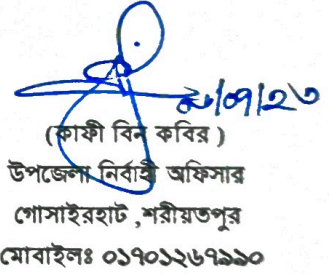 (কাফী বিন কবির )
উপজেলা নির্বাহী অফিসার
গোসাইরহাট ,শরীয়তপুর
মোবাইলঃ ০১৭০১২৬৭৯৯০